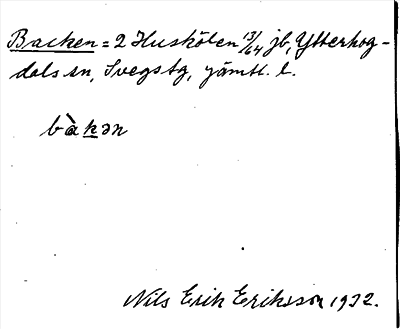 Backen = 2 Huskölen 13/64 jb, Ytterhog-
dals sn, Svegs tg, Jämtl. l.
bàkən
Nils Erik Eriksson 1932.